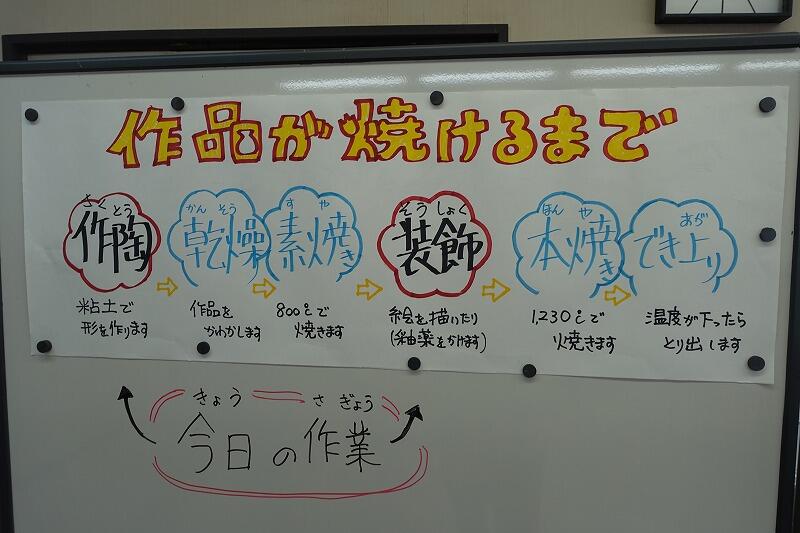 作品が焼けるまで
さくとう
作陶
かんそう
乾燥
すや
素焼き
そうしょく
装飾
ほんや
本焼き
あが
でき上り
粘土で
形を作ります
作品を
かわかします
800℃で
焼きます
絵を描いたり
(釉薬をかけます)
1,230℃で
焼きます
温度が下ったら
とり出します
きょう さぎょう
今日の作業